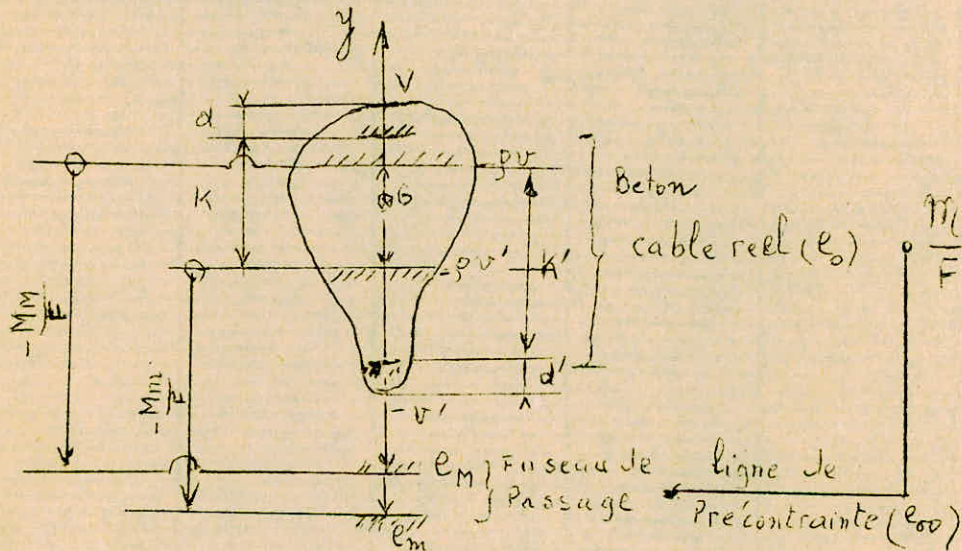 y
V
d
ρv
G
K
Beton
cable reel (e₀)
M
F
-ρv'
K'
-MM
F
-Mm
F
d'
-v'
eM } Fuseau de
Passage
ligne de
Précontrainte (e₀₀)
em